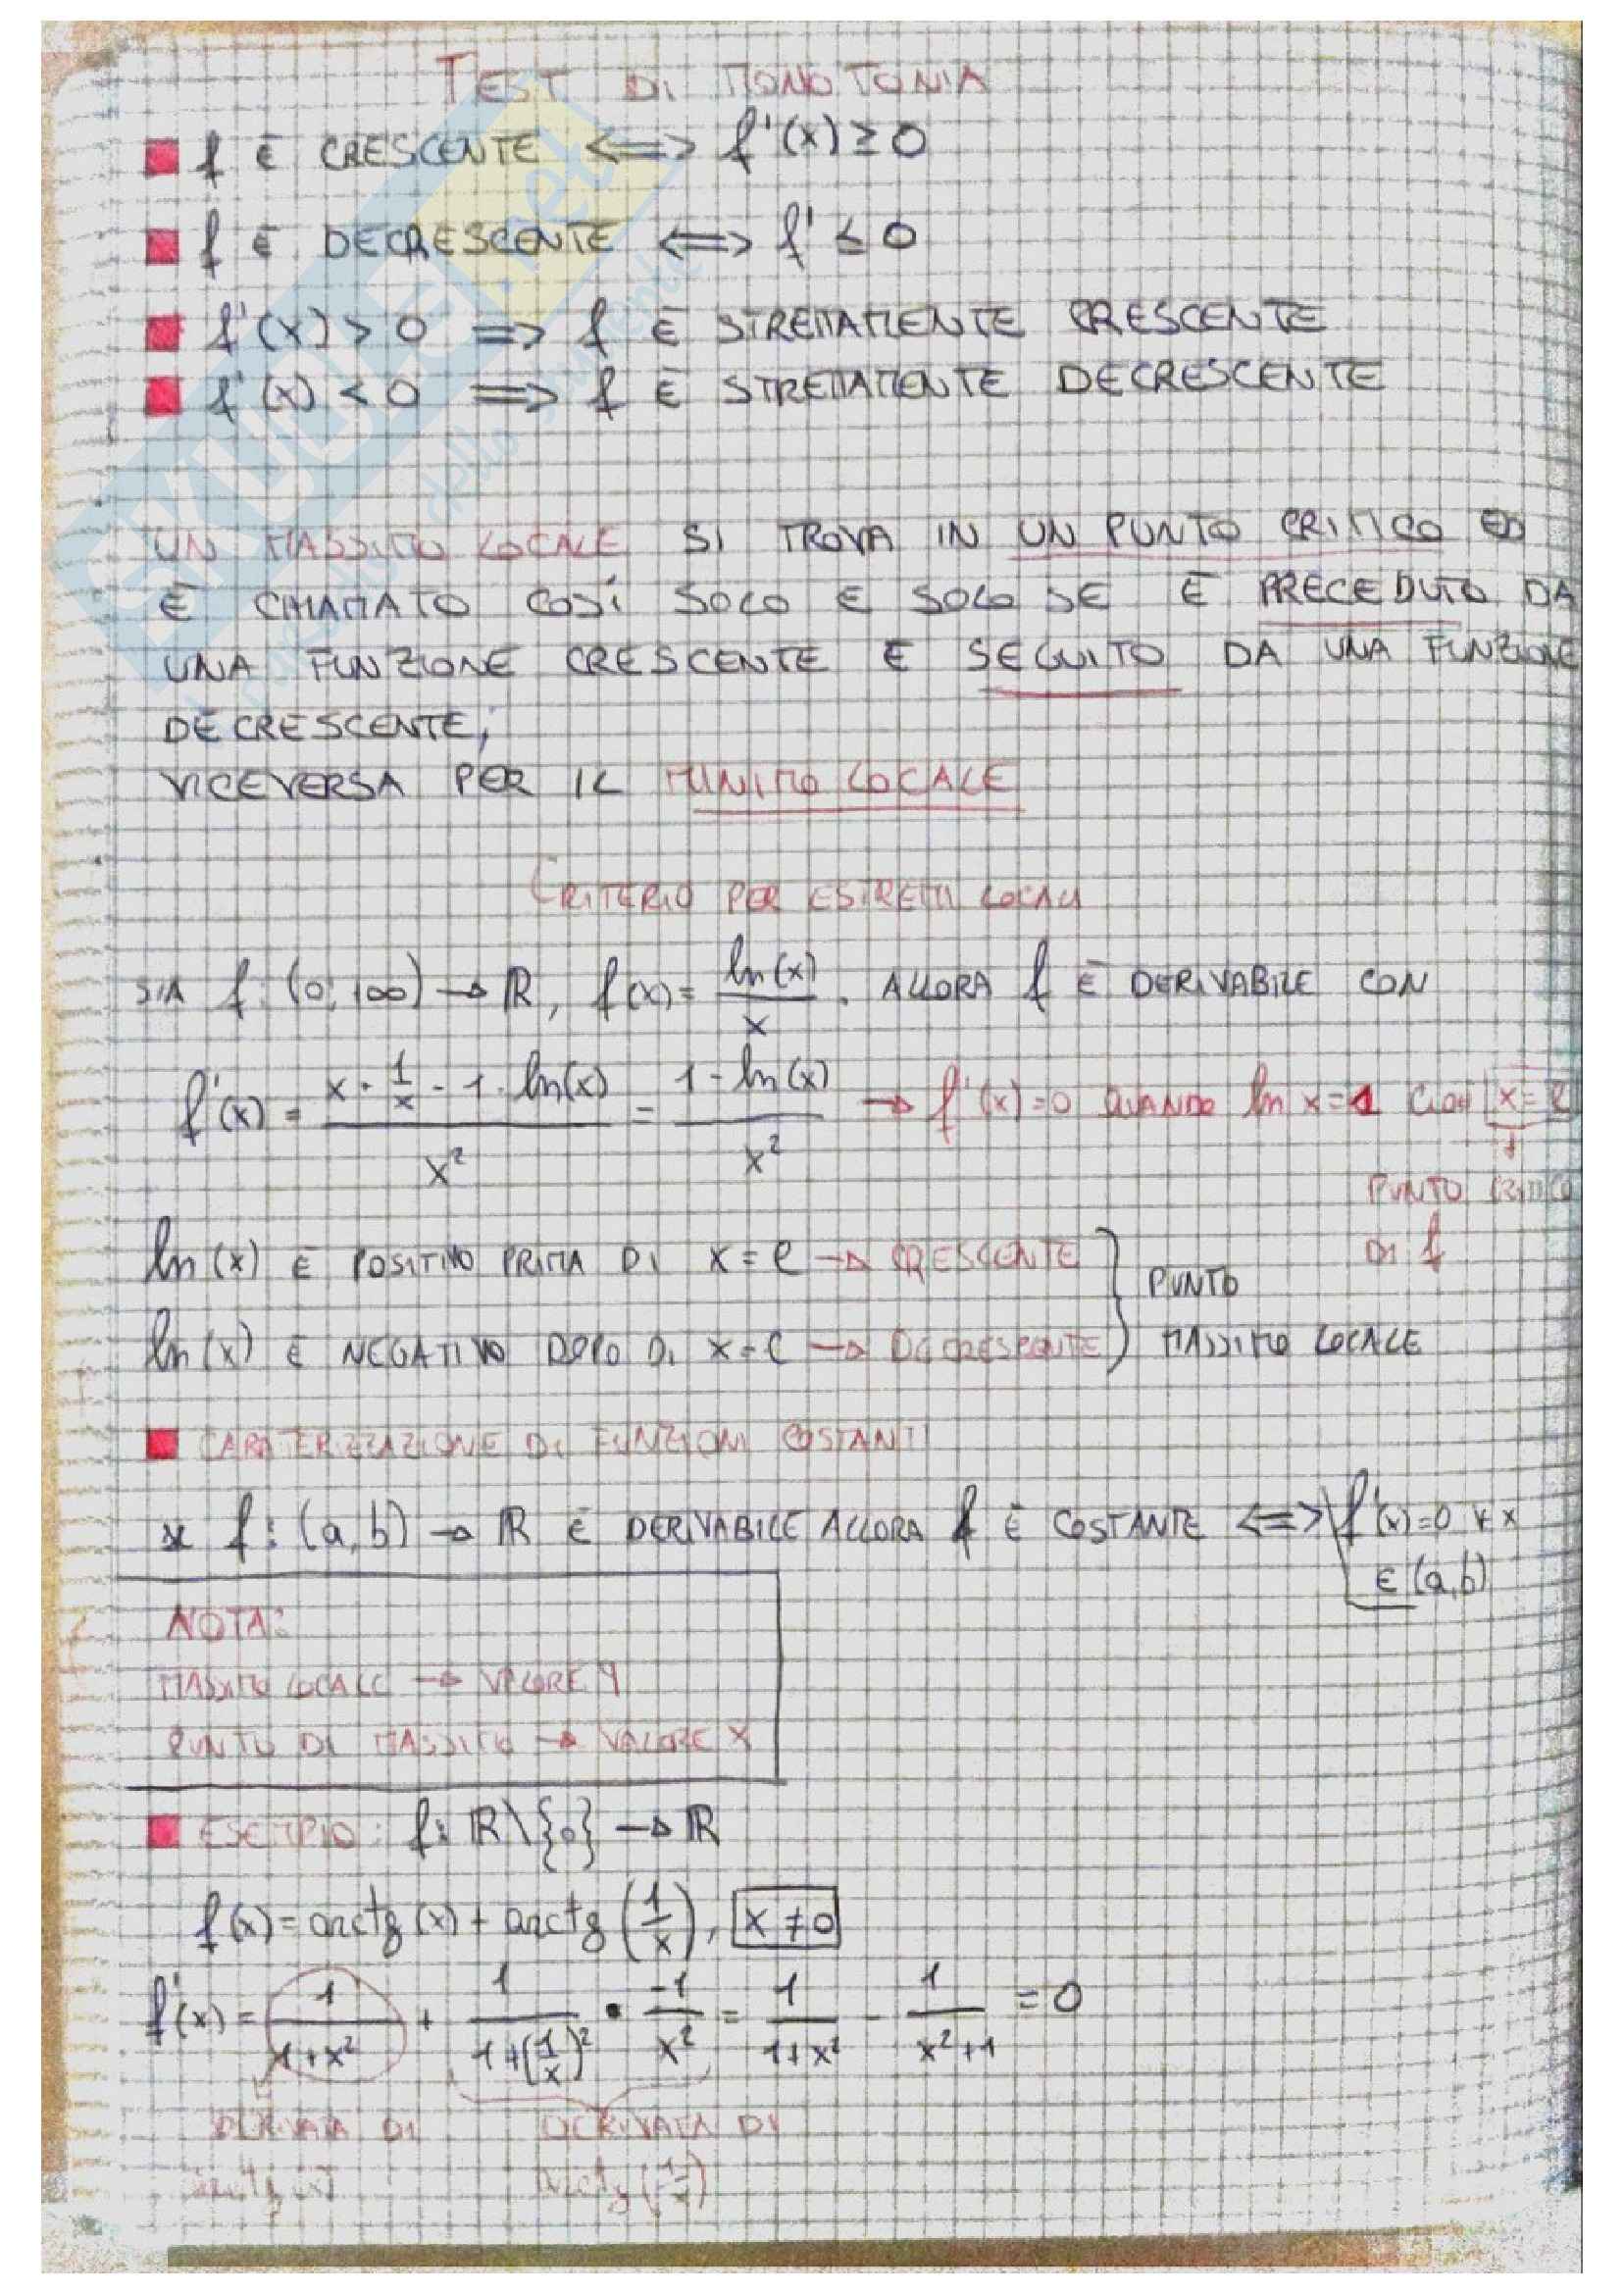 TEST DI MONOTONIA
f È CRESCENTE <=> f'(x) ≥ 0
f È DECRESCENTE <=> f' ≤ 0
f'(x) > 0 => f È STRETTAMENTE CRESCENTE
f'(x) < 0 => f È STRETTAMENTE DECRESCENTE
UN MASSIMO LOCALE SI TROVA IN UN PUNTO CRITICO ED
È CHIAMATO COSÍ SOLO E SOLO SE È PRECEDUTO DA
UNA FUNZIONE CRESCENTE E SEGUITO DA UNA FUNZIONE
DECRESCENTE;
VICEVERSA PER IL MINIMO LOCALE
CRITERIO PER ESTREMI LOCALI
SIA f: (0; +∞) → R, f(x) = ln(x)/x. ALLORA f È DERIVABILE CON
f'(x) = (x · 1/x - 1 · ln(x))/x² = (1 - ln(x))/x² → f'(x)=0 QUANDO ln x=1 CIOÈ x=e
PUNTO CRITICO
DI f
ln(x) È POSITIVO PRIMA DI x=e → CRESCENTE } PUNTO
ln(x) È NEGATIVO DOPO DI x=e → DECRESCENTE } MASSIMO LOCALE
CARATTERIZZAZIONE DI FUNZIONI COSTANTI
se f: (a,b) → R È DERIVABILE ALLORA f È COSTANTE <=> f'(x)=0 ∀ x
∈ (a,b)
NOTA:
MASSIMO LOCALE → VALORE Y
PUNTO DI MASSIMO → VALORE X
ESEMPIO: f: R\{0} → R
f(x) = arctg(x) + arctg(1/x), x ≠ 0
f'(x) = 1/(1+x²) + 1/(1+(1/x)²) • -1/x² = 1/(1+x²) - 1/(x²+1) = 0
DERIVATA DI DERIVATA DI
arctg(x) arctg(1/x)